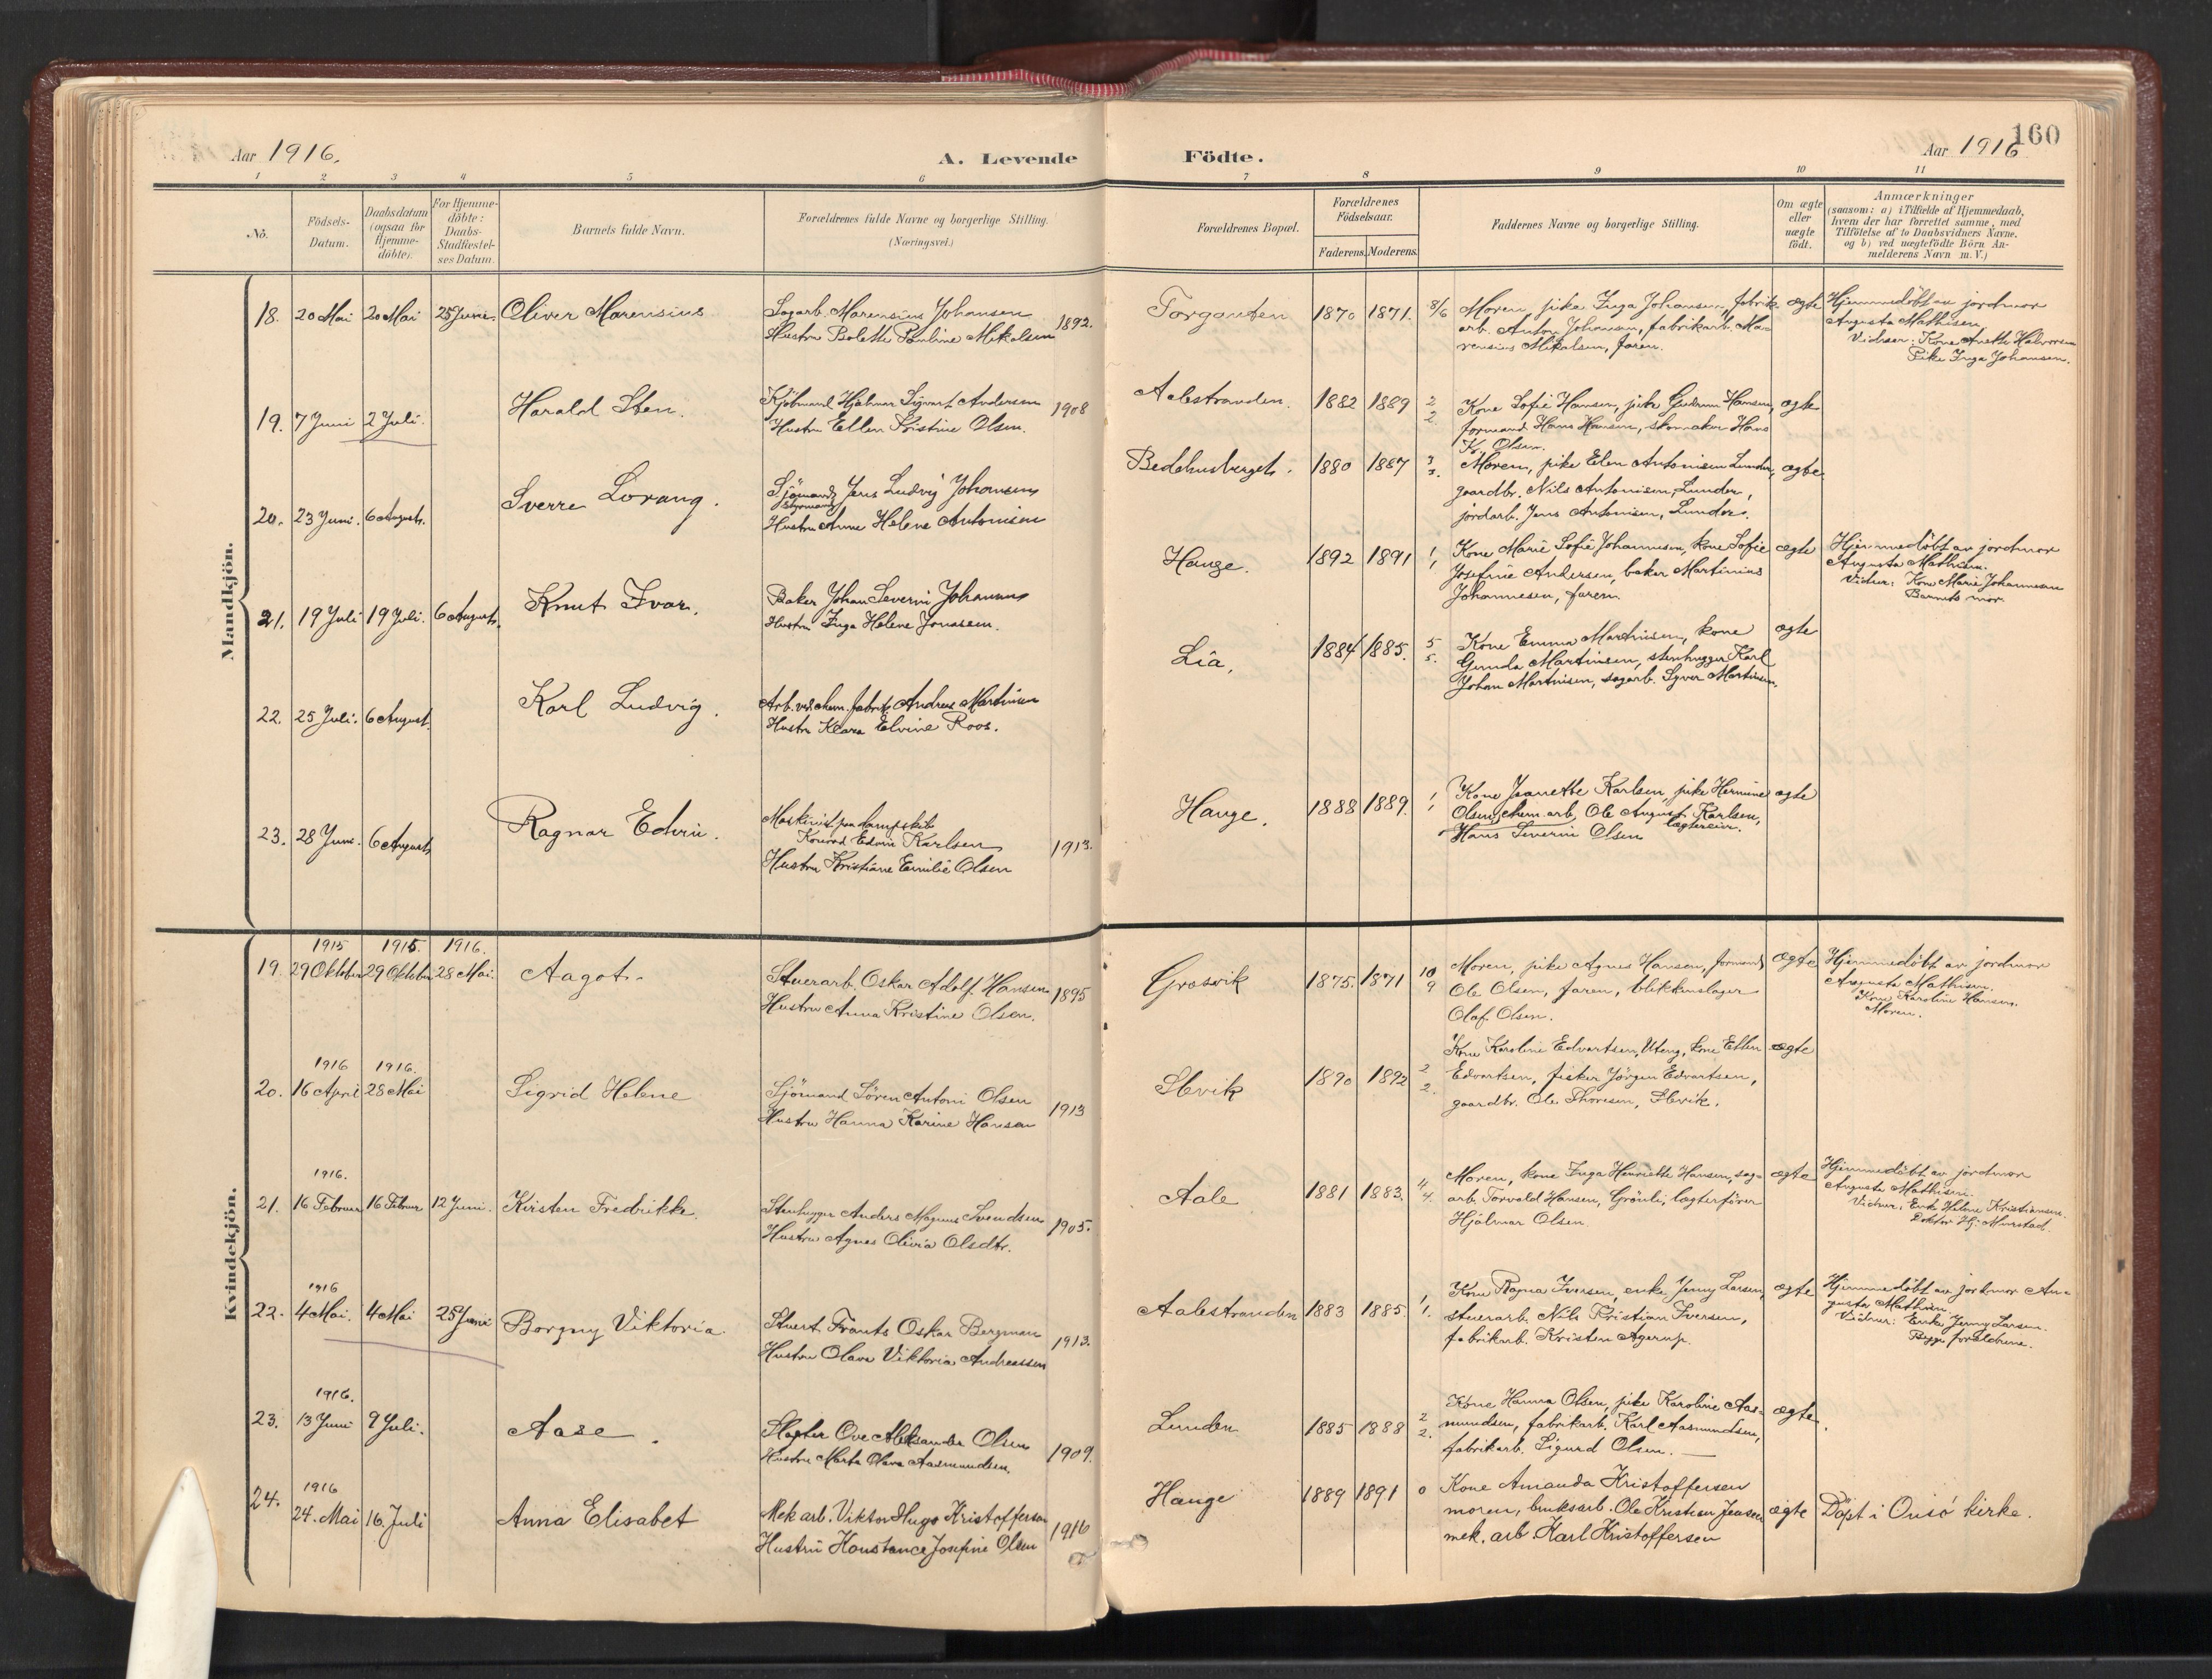 160
Aar 1916.
A. Levende
Födte.
Aar 1916
1 2 3 4 5 6 7 8 9 10 11
No.
Födsels-
Datum.
Daabsdatum
(ogsaa för
Hjemme-
döbte).
For Hjemme-
döbte:
Daabs-
Stadfæstel-
ses Datum.
Barnets fulde Navn.
Forældrenes fulde Navne og borgerlige Stilling.
(Næringsvei.)
Forældrenes Bopæl.
Forældrenes
Födselsaar.
Faderens. Moderens.
Faddernes Navne og borgerlige Stilling.
Om ægte
eller
uægte
födt.
Anmærkninger
(saasom: a) i Tilfælde af Hjemmedaab,
hvem der har forrettet samme, med
Tilföielse af to Daabsvidners Navne,
og b) ved uægtefödte Börn An-
melderens Navn m. V.)
Mandkjön.
18. 20 Mai 20 Mai 25 Juni. Oliver Marensius
Sagarb. Marensius Johansen
Hustru Bolette Pauline Mikalsen 1892.
Torganten 1870 1871. 8/6
Moren, pike Inga Johansen, fabrik-
arb. Anton Johansen, fabrikarb. Ma-
rensius Mikalsen, faren.
ægte
Hjemmedöbt av jordmor
Augusta Mathisen
Vidner: Kone Halvorsen
Pike Inga Johansen.
19. 7 Juni 2 Juli. Harald Sten.
Kjöbmand Hjalmar Sigvart Andersen
Hustru Ellen Kristine Olsen. 1908
Aalestranden. 1882 1889 2 2
Kone Sofie Hansen, pike Gudrun Hansen,
formand Hans Hansen, skomaker Hans
K. Olsen.
ægte
20. 23 Juni. 6 August. Sverre Lorang.
Sjömand Jens Ludvig Johansen
Styrmand
Hustru Anna Helene Antonisen
Bedehusberget. 1880 1887 3 3.
Moren, pike Elen Antonisen Lunder,
gaardbr. Nils Antonisen, Lunder,
jordarb. Jens Antonisen, Lunder.
ægte
21. 19 Juli 19 Juli. 6 August. Knut Ivar.
Baker Johan Severin Johannes
Hustru Inga Helene Jonassen.
Hauge. 1892 1891 1 1
Kone Marie Sofie Johannesen, kone Sofie
Josefine Andersen, baker Martinius
Johannesen, faren.
ægte
Hjemmedöbt av jordmor
Augusta Mathisen.
Vidner: Kone Marie Johannesen
Barnets mor.
22. 25 Juli. 6 August. Karl Ludvig.
Arb. ved chem. fabrik Andreas Martinsen
Hustru Klara Elvine Roos.
Lia, 1884 1885. 5 5.
Kone Emma Martinsen, kone
Gunda Martinsen, stenhugger Karl
Johan Martinsen, sagarb. Syver Martinsen.
ægte
23. 28 Juni. 6 August Ragnar Edvin.
Maskinist paa dampskib
Konrad Edvin Karlsen
Hustru Kristiane Emilie Olsen 1913.
Hauge. 1888 1889. 1 1
Kone Jeanette Karlsen, pike Hermine
Olsen, chem. arb. Ole August Karlsen,
Hans Severin Olsen lægtereier.
ægte
Kvindekjön.
1915 1915. 1916.
19. 29 Oktober 29 Oktober 28 Mai. Aagot.
Stuerarb. Oskar Adolf Hansen
Hustru Anna Kristine Olsen. 1895
Græsvik 1875. 1871 10 9
Moren, pike Agnes Hansen, formand
Ole Olsen, faren, blikkenslager
Olaf Olsen.
ægte
Hjemmedöbt av jordmor
Augusta Mathisen.
Kone Karoline Hansen.
Moren.
1916 1916.
20. 16 April 28 Mai Sigrid Helene
Sjömand Sören Antoni Olsen
Hustru Hanna Karine Hansen 1913
Slevik 1890 1892 2 2.
Kone Karoline Edvartsen, Uteng, kone Ellen
Edvartsen, fisker Jörgen Edvartsen,
gaardbr. Ole Thoresen, Slevik.
ægte
1916.
21. 16 Februar 16 Februar 12 Juni. Kirsten Fredrikke.
Stenhugger Anders Magnus Svendsen
Hustru Agnes Olivia Olsdtr. 1905.
Aale 1881 1883. 4 4.
Moren, kone Inga Henriette Hansen, sag-
arb. Torvald Hansen, Grönli, lægterförer
Hjalmar Olsen.
ægte
Hjemmedöbt av jordmor
Augusta Mathisen.
Vidner: Enke Helene Kristiansen.
Doktor Hj. Murstad.
1916
22. 4 Mai. 4 Mai 25 Juni Borgny Viktoria.
Stuert Frants Oskar Bergman
Hustru Olava Viktoria Andreassen 1913.
Aalestranden 1883 1885. 1 1.
Kone Ragna Iversen, enke Jenny Larsen,
stuerarb. Nils Kristian Iversen,
fabrikarb. Kristen Agerup.
ægte
Hjemmedöbt av jordmor Au-
gusta Mathisen.
Vidner: Enke Jenny Larsen.
Begge forældrene.
1916.
23. 13 Juni 9 Juli. Aase.
Slagter Ove Aleksander Olsen
Hustru Marta Olava Aasmundsen. 1909.
Lunden 1885 1888 2 2.
Kone Hanna Olsen, pike Karoline Aas-
mundsen, fabrikarb. Karl Aasmundsen,
fabrikarb. Sigurd Olsen.
ægte.
1916
24. 24. Mai 16. Juli Anna Elisabet
Mek. arb. Viktor Hugo Kristoffersen
Hustru Konstance Josefine Olsen 1916
Hauge 1889 1891 0
Kone Amanda Kristoffersen
moren, bruksarb. Ole Kristian Jensen
mek. arb Karl Kristoffersen
ægte
Döpt i Onsö kirke.